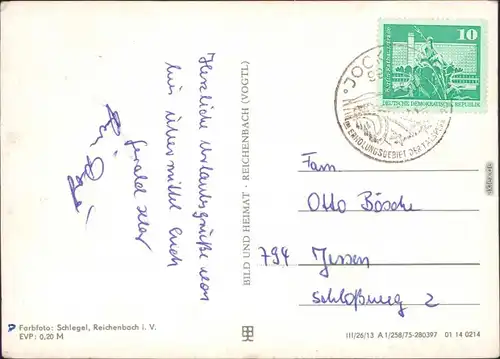 Herzliche Urlaubsgrüße von
hier übermittel Euch
Gerald
BILD UND HEIMAT · REICHENBACH (VOGTL)
10
DEUTSCHE DEMOKRATISCHE REPUBLIK
Fam.
Otto Bösche
794 Jessen
Schloßweg 2
Farbfoto: Schlegel, Reichenbach i. V.
EVP: 0,20 M
III/26/13 A 1/258/75-280397 01 14 0214